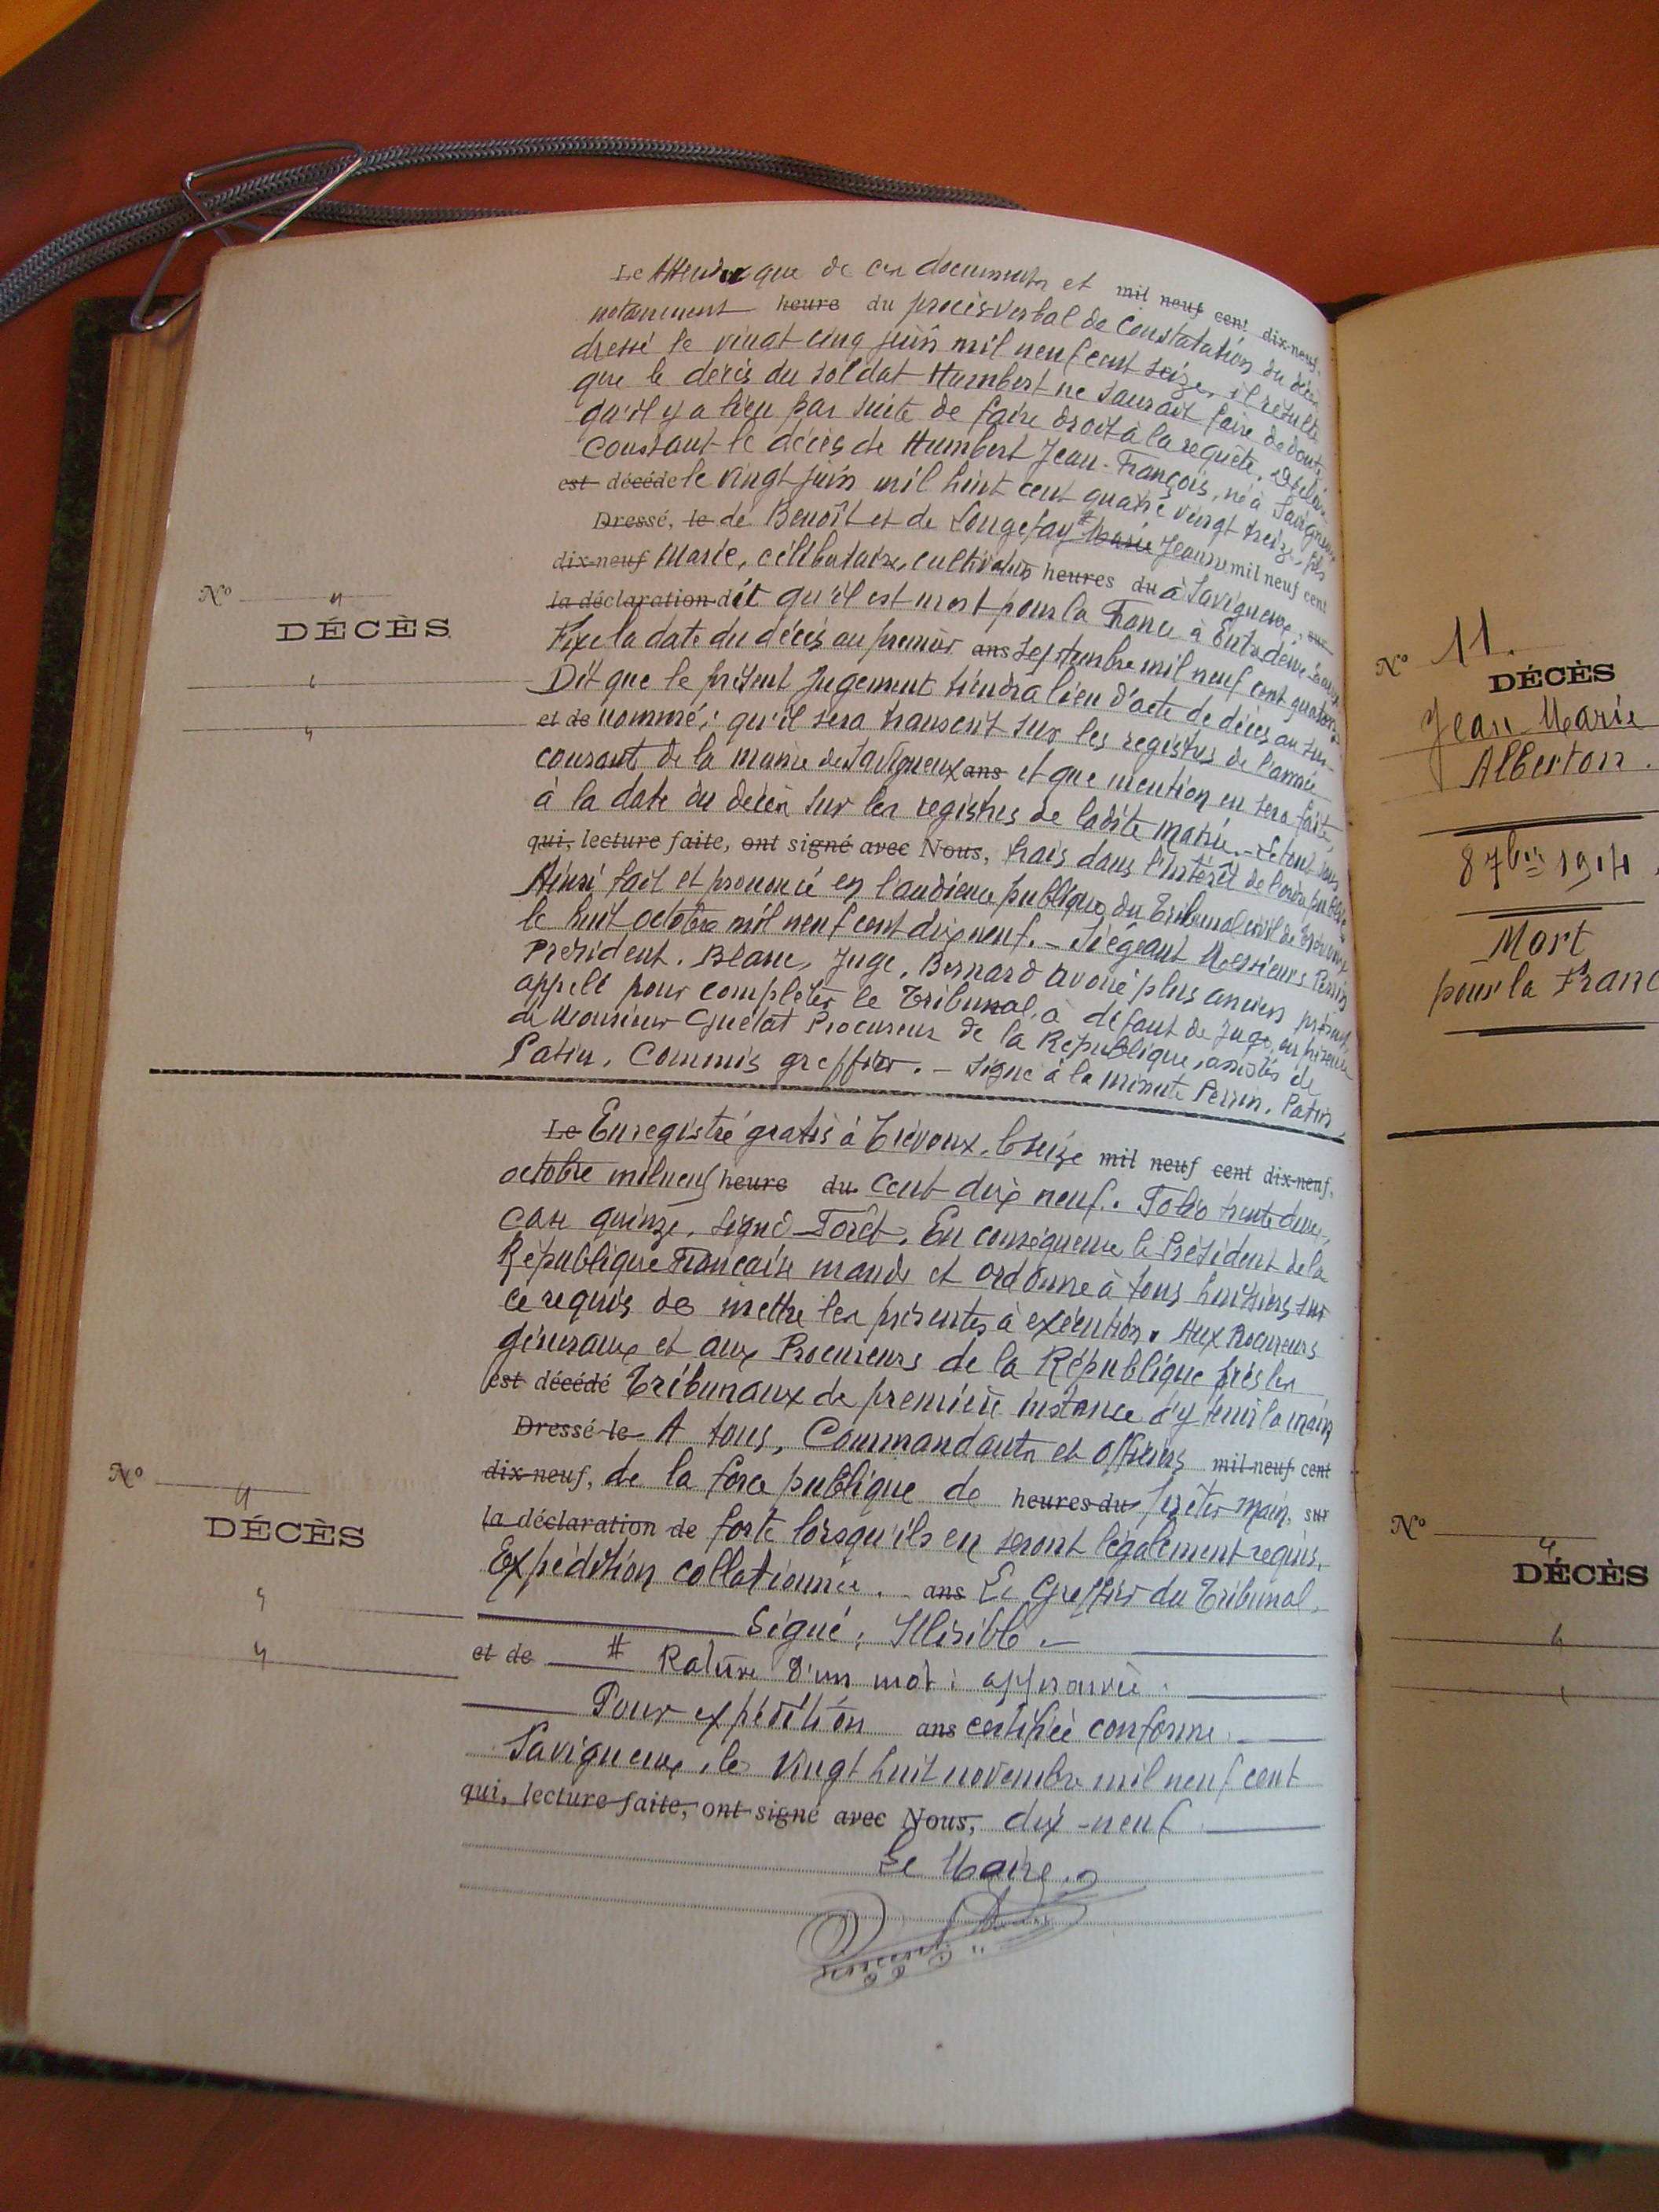 Le Attendu que de ces documents et mil neuf cent dix-neuf,
notamment heure du procès verbal de constatation du décès
dressé le vingt cinq juin mil neuf cent seize, il résulte
que le décès du soldat Humbert ne saurait faire de doute
qu'il y a lieu par suite de faire droit à la requête. Déclare
constant le décès de Humbert Jean-François, né à Savigneux
est décédé le vingt juin mil huit cent quatre vingt treize, fils
Dressé, le de Benoît et de Longefay # Marie Jeanne mil neuf cent
dix-neuf Marie, célibataire, cultivateur heures du à Savigneux, sur
la déclaration dit qu'il est mort pour la France à
Fixe la date du décès au premier ans septembre mil neuf cent quatorze
Dit que le présent jugement tiendra lieu d'acte de décès au sus-
et de nommé; qu'il sera transcrit sur les registres de l'année
courant de la mairie de Savigneux ans et que mention en sera faite,
à la date du décès sur les registres de ladite mairie. - Le tout sans
qui, lecture faite, ont signé avec Nous, frais dans l'intérêt de l'ordre public
Ainsi fait et prononcé en l'audience publique du Tribunal civil de Trévoux
le huit octobre mil neuf cent dix neuf. - Siégeant Messieurs Perrin
Président. Blanc, Juge, Bernard avoué plus ancien présent,
appelé pour compléter le Tribunal, à défaut de Juge, en présence
de Monsieur Guélat Procureur de la République, assistés de
Patin, Commis greffier. - Signé à la minute Perrin, Patin
Le Enregistré gratis à Trévoux, le seize mil neuf cent dix-neuf,
octobre mil neuf heure du cent dix neuf. Folio trente deux,
case quinze. Signé Forêt. En conséquence le Président de la
République Française mande et ordonne à tous huissiers sur
ce requis de mettre les présentes à exécution. Aux Procureurs
généraux et aux Procureurs de la République près les
est décédé Tribunaux de première instance d'y tenir la main
Dressé le A tous, Commandants et officiers mil neuf cent
dix-neuf, de la force publique de heures du prêter main, sur
la déclaration de forte lorsqu'ils en seront légalement requis.
Expédition collationnée. ans Le Greffier du Tribunal,
Signé: Illisible -
et de # Rature d'un mot: approuvée.
Pour expédition ans certifiée conforme.
Savigneux, le vingt huit novembre mil neuf cent
qui, lecture faite, ont signé avec Nous, dix-neuf
Le Maire,
No
DÉCÈS
No
DÉCÈS
No 11.
DÉCÈS
Jean Marie
Alberton.
8 7bre 1914
Mort
pour la Franc
No
DÉCÈS